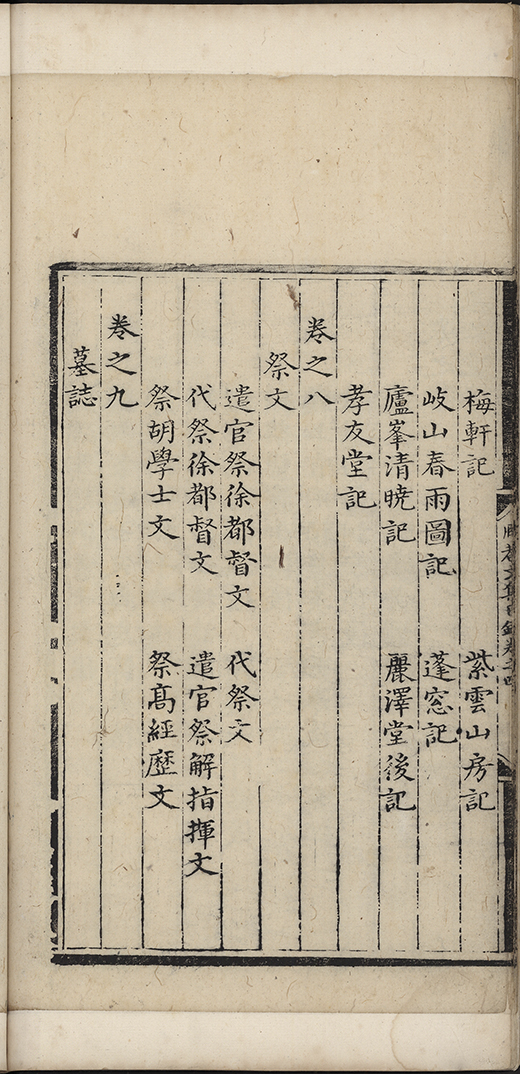 梅軒記 紫雲山房記
岐山春雨圖記 蓬窓記
廬峯清曉記 麗澤堂後記
孝友堂記
卷之八
祭文
遣官祭徐都督文 代祭文
代祭徐都督文 遣官祭解指揮文
祭胡學士文 祭髙經歷文
卷之九
墓誌